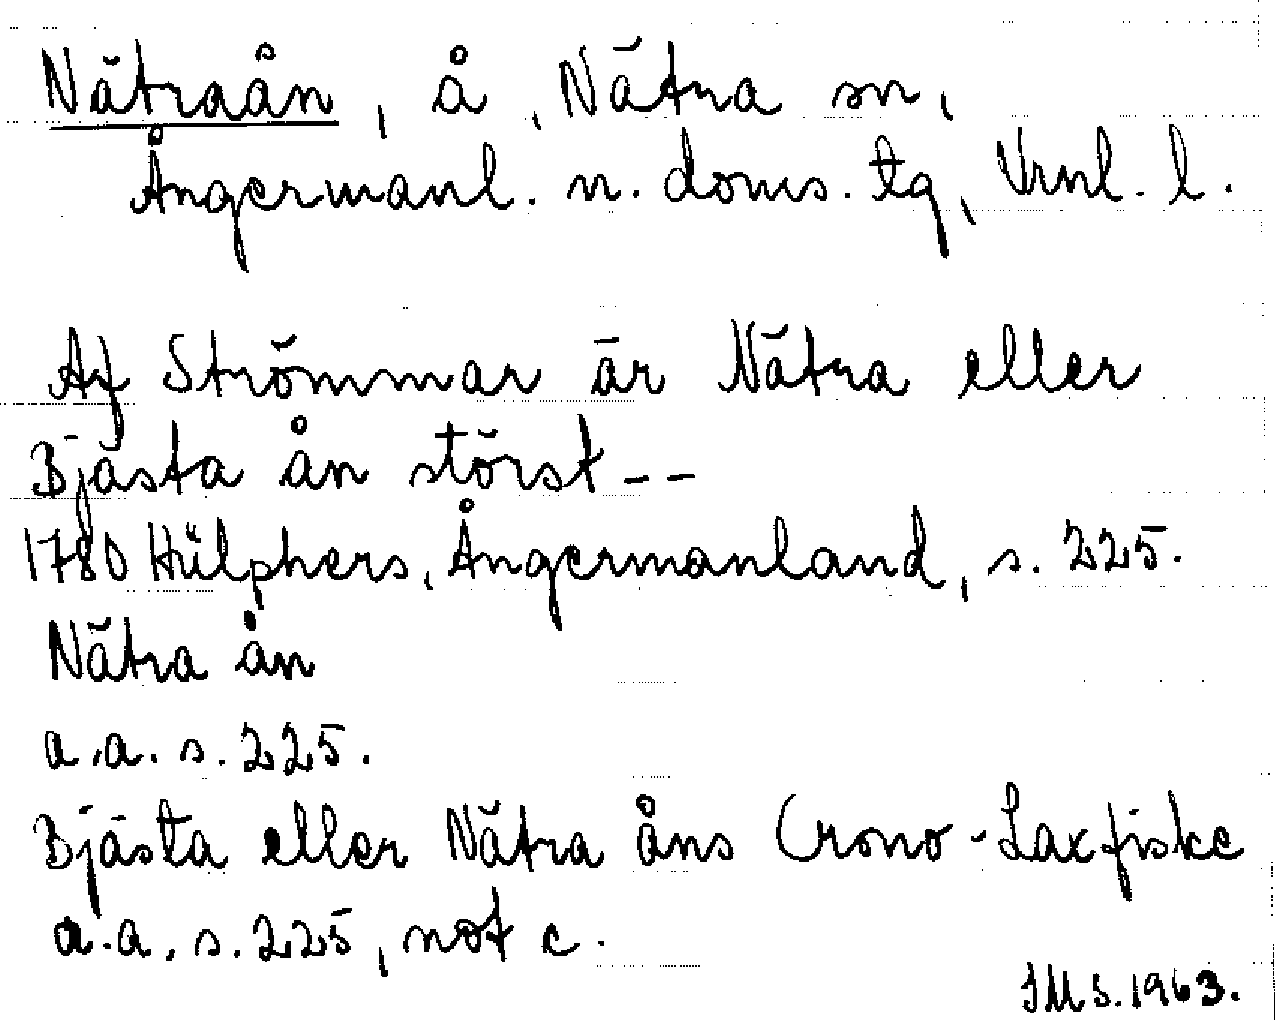 Nätraån, å, Nätra sn,
Ångermanl. n. doms. tg, Vrnl. l.
Af Strömmar är Nätra eller
Bjästa ån störst --
1780 Hülphers, Ångermanland, s. 225.
Nätra ån
a.a. s. 225.
Bjästa eller Nätra åns Crono-Laxfiske
a.a. s. 225, not c.
IMS. 1963.